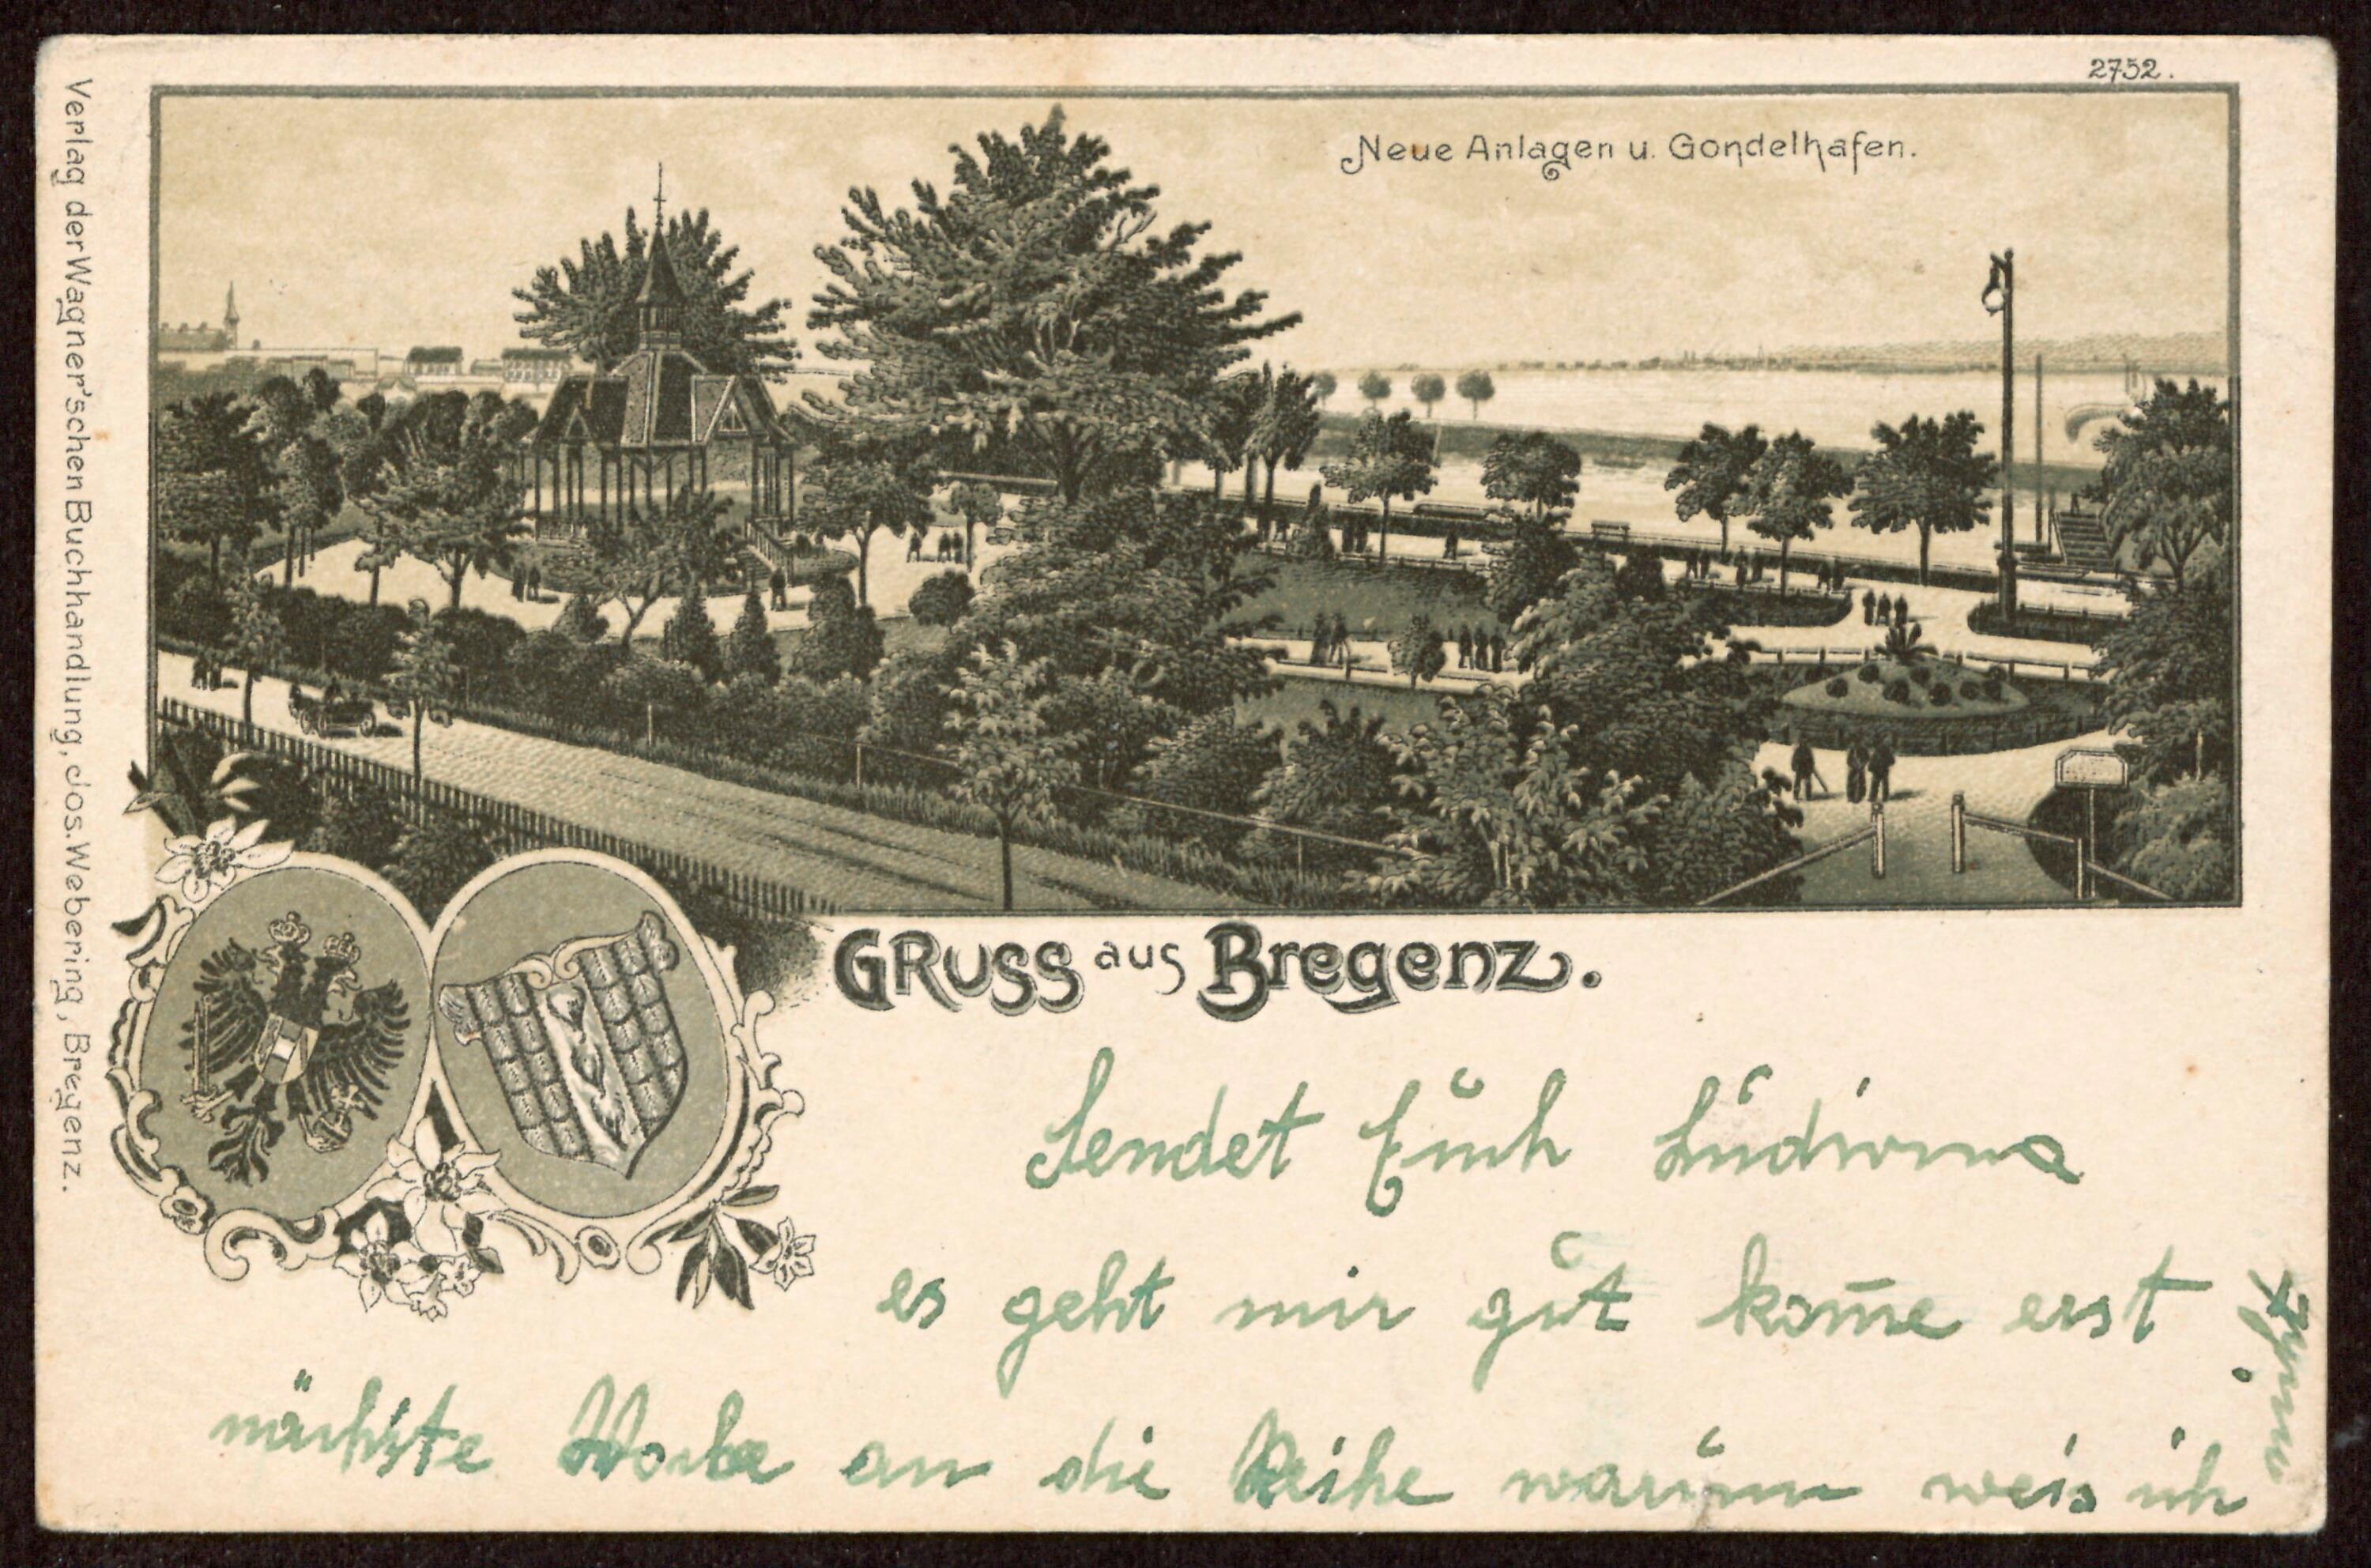 2752.
Neue Anlagen u. Gondelhafen.
Verlag der Wagner'schen Buchhandlung, Jos. Webering, Bregenz.
GRUSS aus Bregenz.
Sendet Euch Ludwina
es geht mir gut kom̄e erst
nächste Woche an die Reihe warum weis ich
nicht